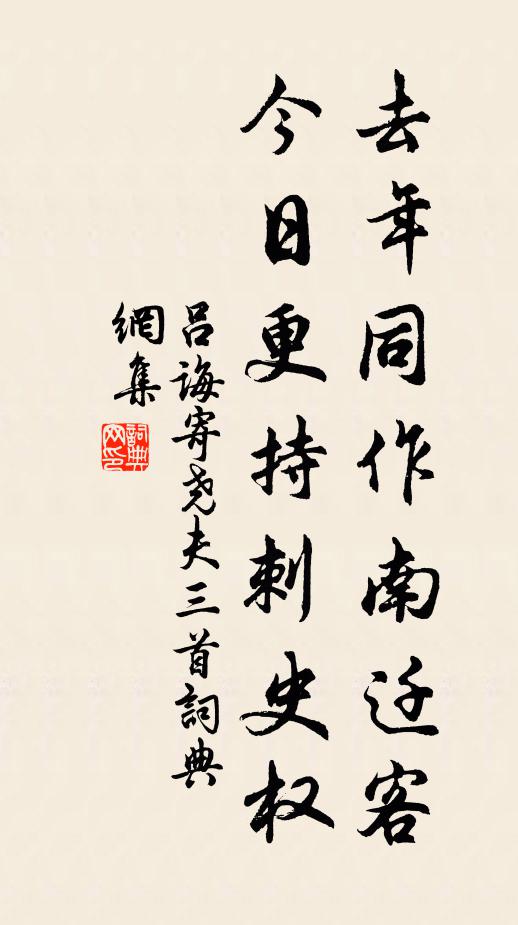 去年同作南迁客
今日更持刺史权
吕誨寄尧夫三首詞典
網集
詞典
网印